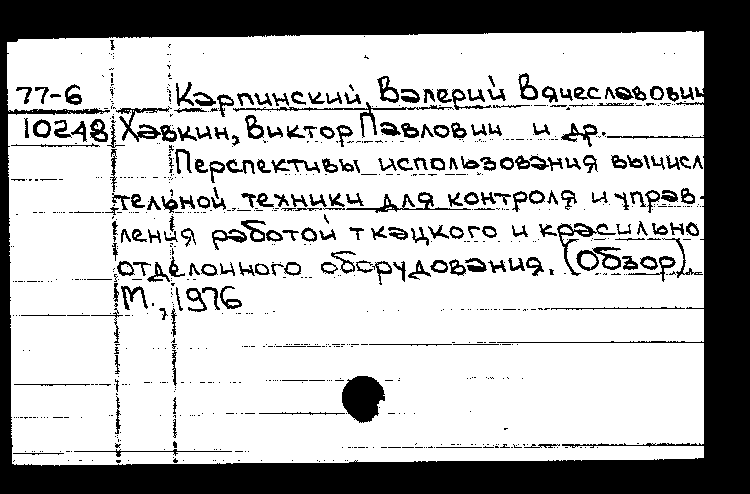 77-6 Карпинский, Валерий Вячеславович
10248 Хавкин, Виктор Павлович и др.
Перспективы использования вычисли
тельной техники для контроля и управ-
ления работой ткацкого и красильно
отделочного оборудования. (Обзор).
М., 1976